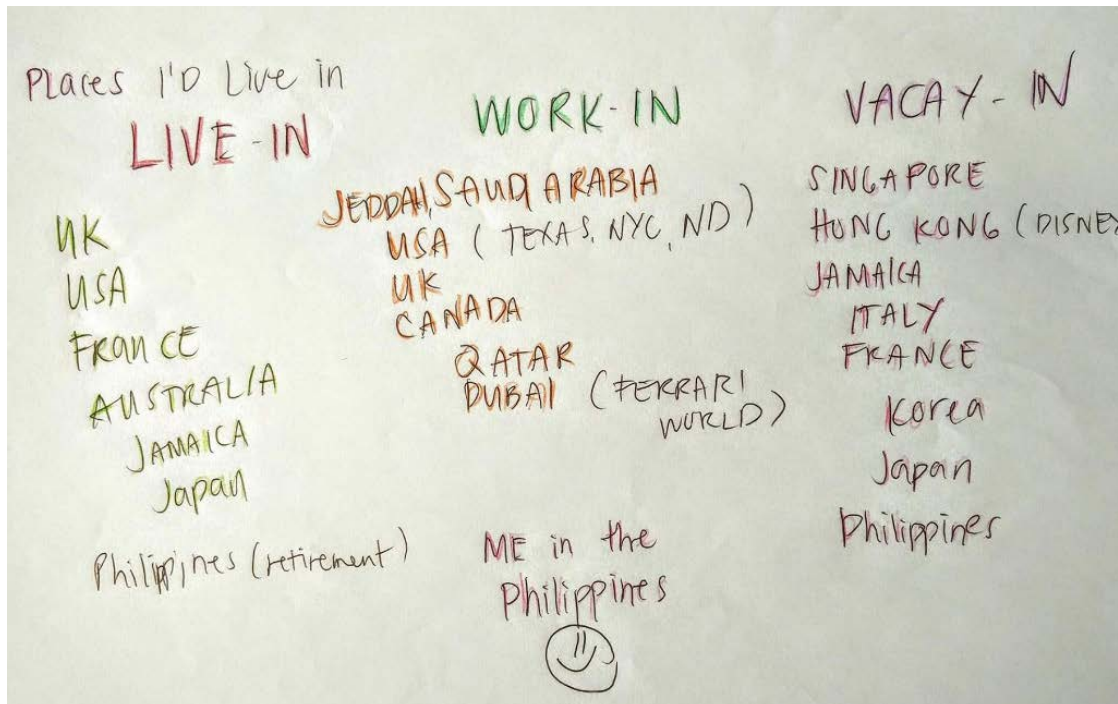 Places I'D Live in
LIVE-IN
UK
USA
FRANCE
AUSTRALIA
JAMAICA
Japan
Philippines (retirement)
WORK-IN
JEDDAH, SAUDI ARABIA
USA (TEXAS, NYC, ND)
UK
CANADA
QATAR
DUBAI (FERRARI
WORLD)
ME in the
Philippines
VACAY-IN
SINGAPORE
HONG KONG (DISNEY
JAMAICA
ITALY
FRANCE
Korea
Japan
Philippines